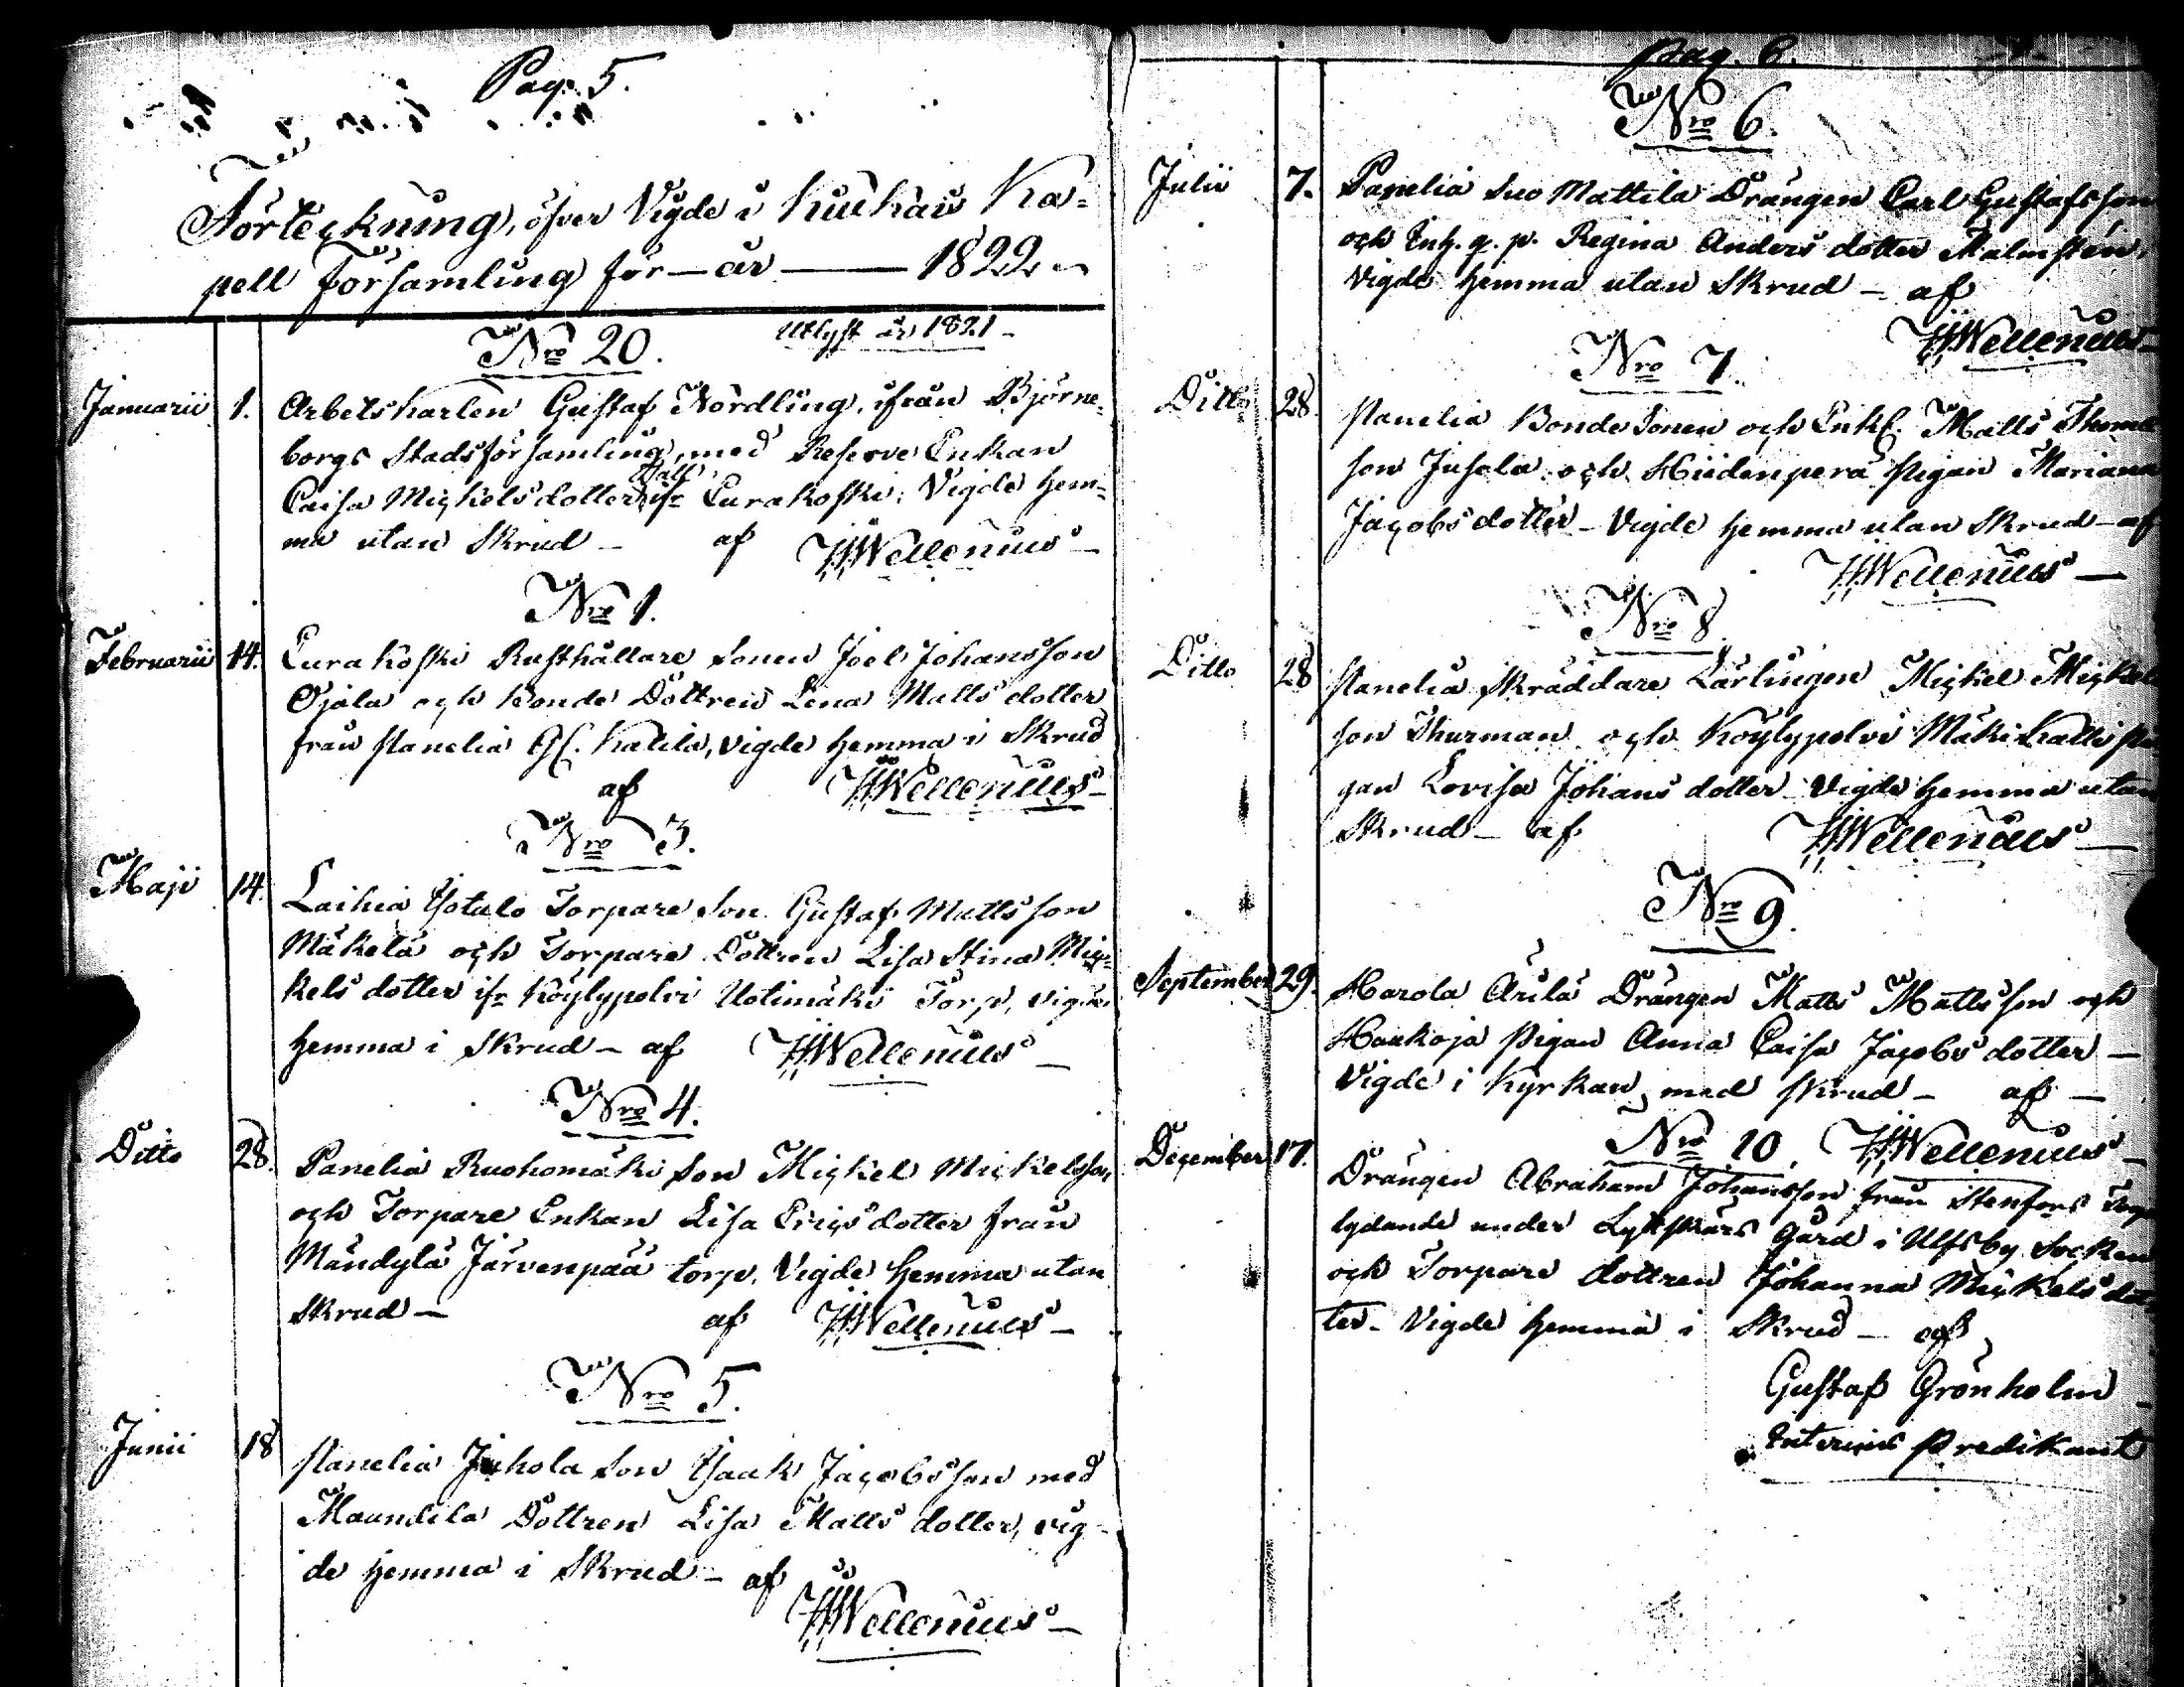 Pag. 5.
Förteckning, öfver Vigde i Kiukais Ka-
pell Församling för - år — 1822.
Nro 20. Utlyst år 1821 -
Januarii 1. Arbetskarlen Gustaf Nordling, ifrån Björne-
borgs Stadsförsamling, med Reserve Enkan
Caisa Mickelsdotter Dall ifr Eurakoski; Vigde hem-
ma utan Skrud - af HWellenius -
Nro 1.
Februarii 14. Eurakoski Rusthållare Sonen Joel Johansson
Ojala och Bonde Dottren Lena Matts dotter
från Panelia Gl. Katila, vigde hemma i Skrud
af HWellenius -
Nro 3.
Maji 14. Laihia Isotalo Torpare Son Gustaf Mattsson
Mäkelä och Torpare Dottren Lisa Stina Mic-
kels dotter ifr Köylypolvi Uotimäki Torp, vigde
hemma i Skrud - af HWellenius -
Nro 4.
Ditto 28. Panelia Ruohomäki Son Mickel Mickelsson
och Torpare Enkan Lisa Ericsdotter från
Mändylä Järvenpää torp. Vigde hemma utan
Skrud - af HWellenius -
Nro 5.
Junii 18 Panelia Juhola Son Isaak Jacobsson med
Maundila Dottren Lisa Matts dotter, vig-
de hemma i Skrud - af
HWellenius -
Pag. 6.
Nro 6.
Julii 7. Panelia Suo Mattila Drängen Carl Gustafsson
och Inh. q. p. Regina Anders dotter Malmstén,
Vigde hemma utan Skrud - af
HWellenius -
Nro 7.
Ditto 28. Panelia Bonde Sonen och Enkl. Matts Thomas
son Jusela och Hiidenperä Pigan Mariana
Jacobs dotter - Vigde hemma utan Skrud - af
HWellenius -
Nro 8.
Ditto 28 Panelia Skräddare Lärlingen Mickel Mickels
son Thurman och Köylypolvi Mäki Kalli Pi
gan Lovisa Johans dotter - Vigde hemma utan
Skrud - af HWellenius -
Nro 9.
September 29. Harola Arila Drängen Matts Mattsson och
Haukoja Pigan Anna Caisa Jacobs dotter -
Vigde i Kyrkan med skrud - af -
Nro 10. HWellenius -
December 17. Drängen Abraham Johansson från Stenfors Torp
lydande under Lyttskärs Gård i Ulfsby Socken
och Torpare dottren Johanna Mickels dot
ter - Vigde hemma i Skrud - af
Gustaf Grönholm
Interims Predikant